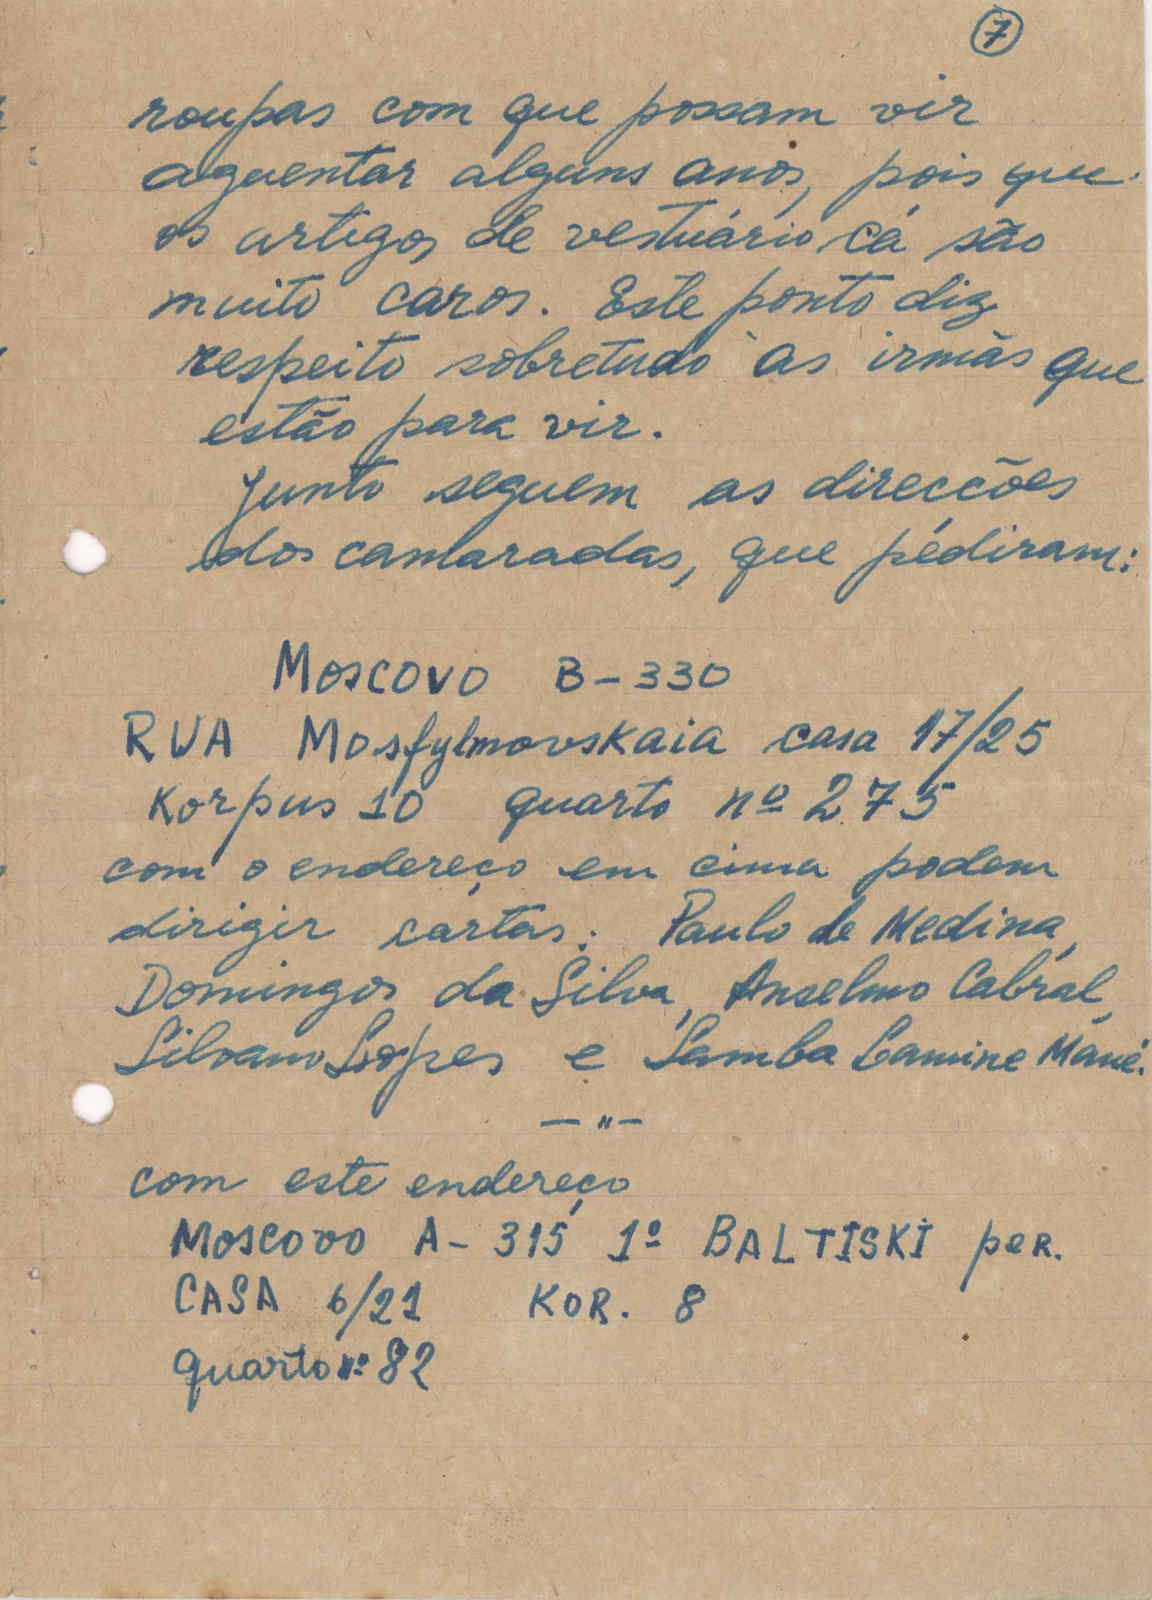 7
roupas com que possam vir
aguentar alguns anos, pois que
os artigos de vestuário cá são
muito caros. Este ponto diz
respeito sobretudo às irmãs que
estão para vir.
Junto seguem as direcções
dos camaradas, que pediram:
Moscovo B-330
RUA Mosfylmovskaia casa 17/25
Korpus 10 quarto nº 275
com o endereço em cima podem
dirigir cartas: Paulo de Medina,
Domingos da Silva, Anselmo Cabral,
Silvano Lopes e Samba Lamine Mané.
— " —
com este endereço
MOSCOVO A- 315 1º BALTISKI peR.
CASA 6/21 KOR. 8
quarto nº 82